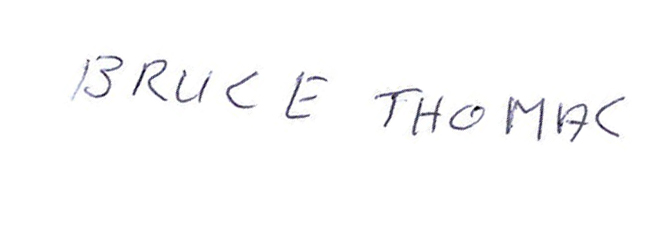 BRUCE THOMAC